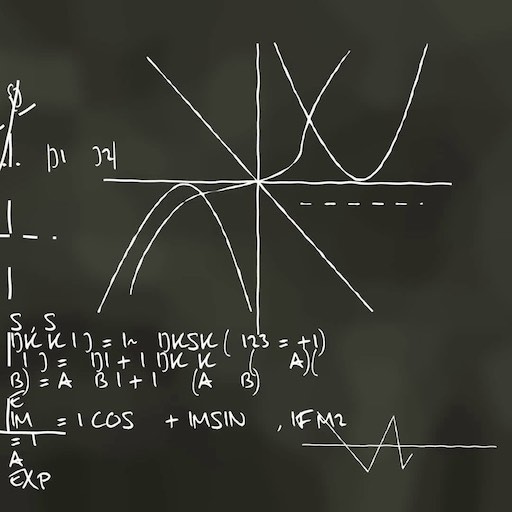 S, S
|DK K 1 ) = 1~ DKSK ( 123 = +1)
1 ) = D1 + 1 DK K ( A)(
B) = A B 1 + 1 (A B)
E
|M = 1 COS + 1MSIN , IF M2
= 1
A
EXP